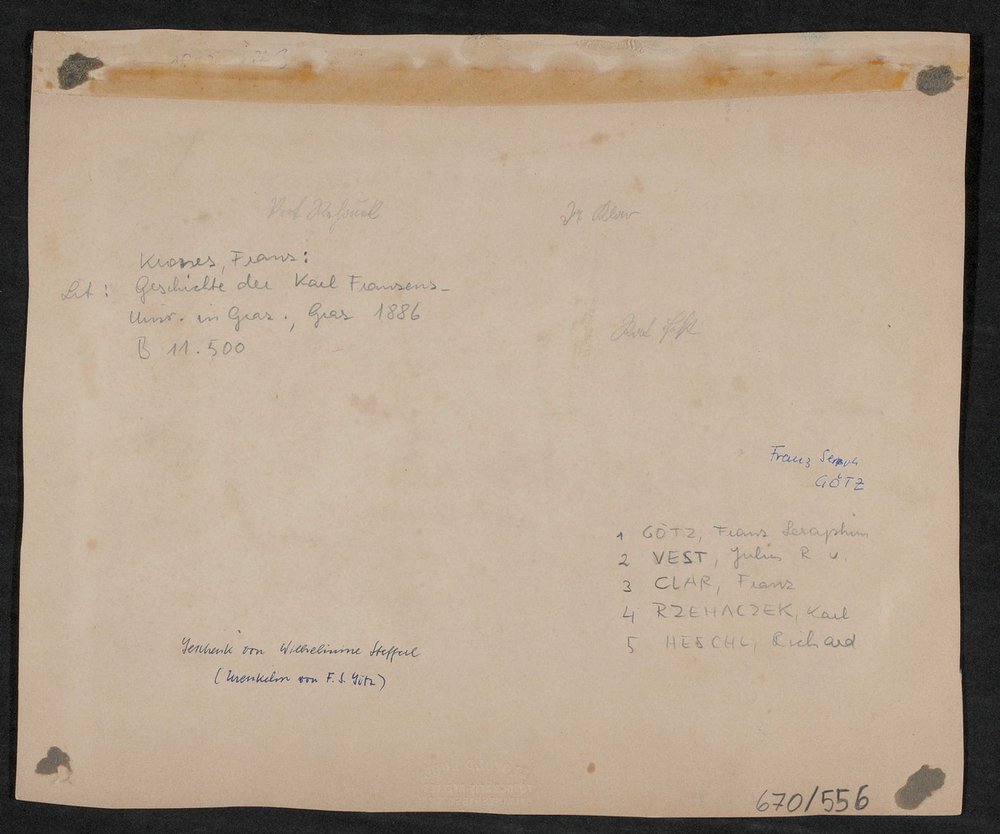 Dr Clar
Krones, Franz:
Lit: Geschichte der Karl Franzens-
Univ. in Graz., Graz 1886
B 11.500
Franz Seraph
GÖTZ
1 GÖTZ, Franz Seraphim
2 VEST, Julius R v.
3 CLAR, Franz
4 RZEHACZEK, Karl
5 HESCHL, Richard
Geschenk von Wilhelmine Steffel
(Urenkelin von F. S. Götz)
670/556